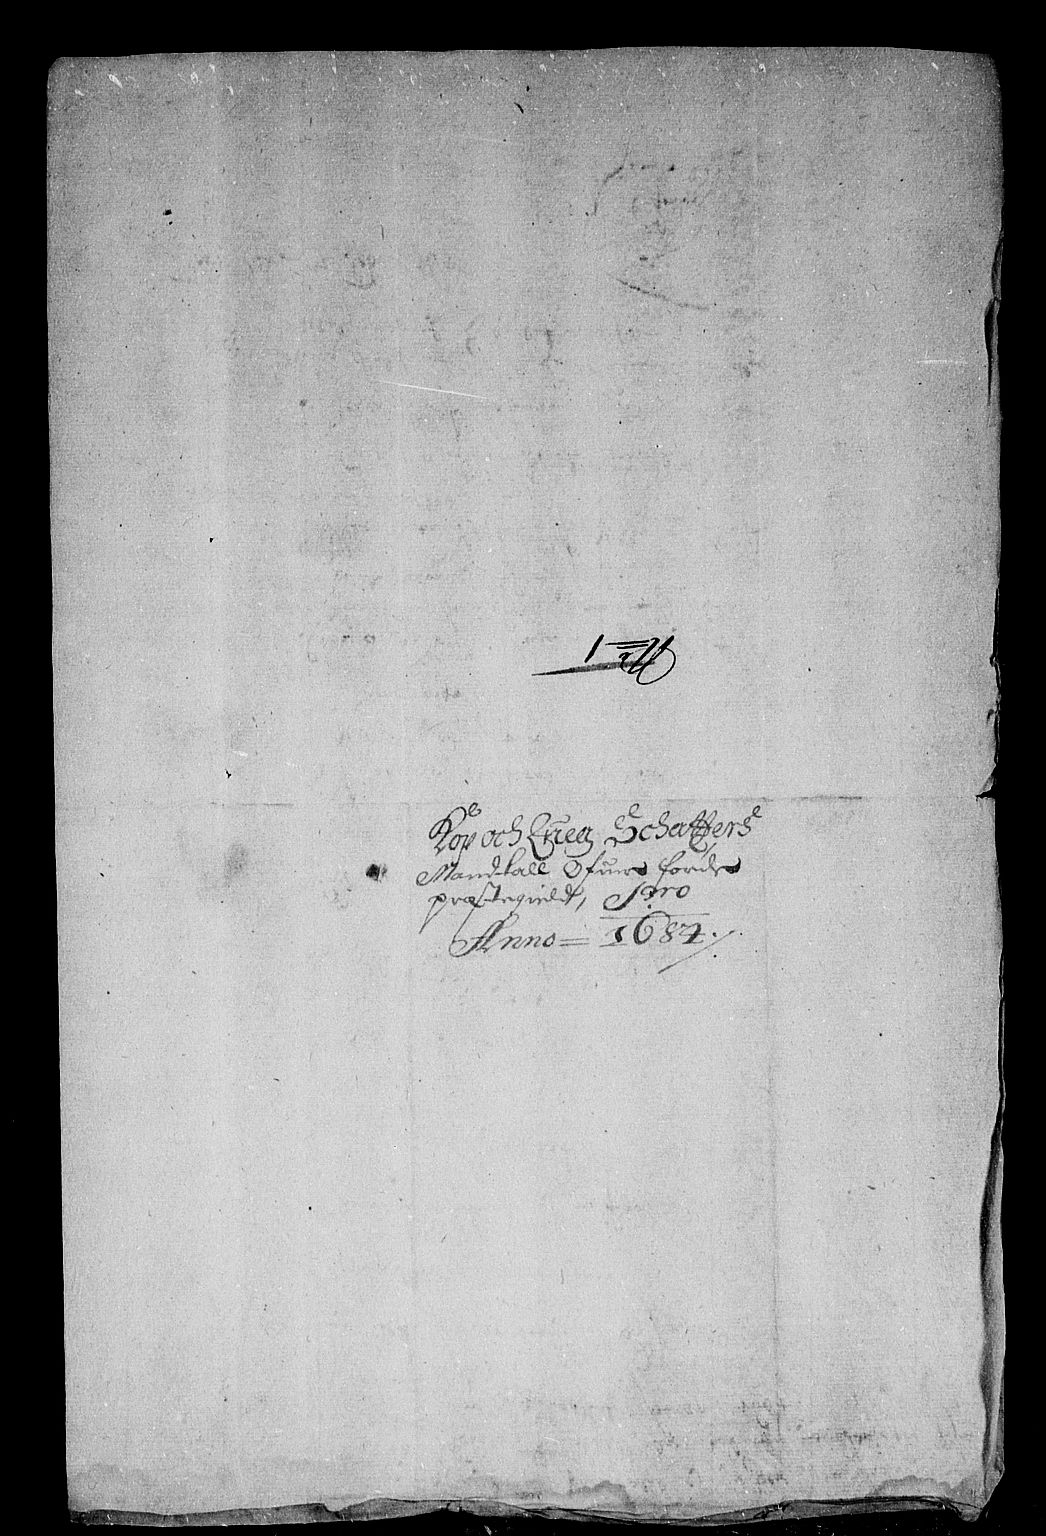 Kop och Qveg Schatters
Mandtall Ofuer fordes
præstegieldt, Pro
Anno = 1684.